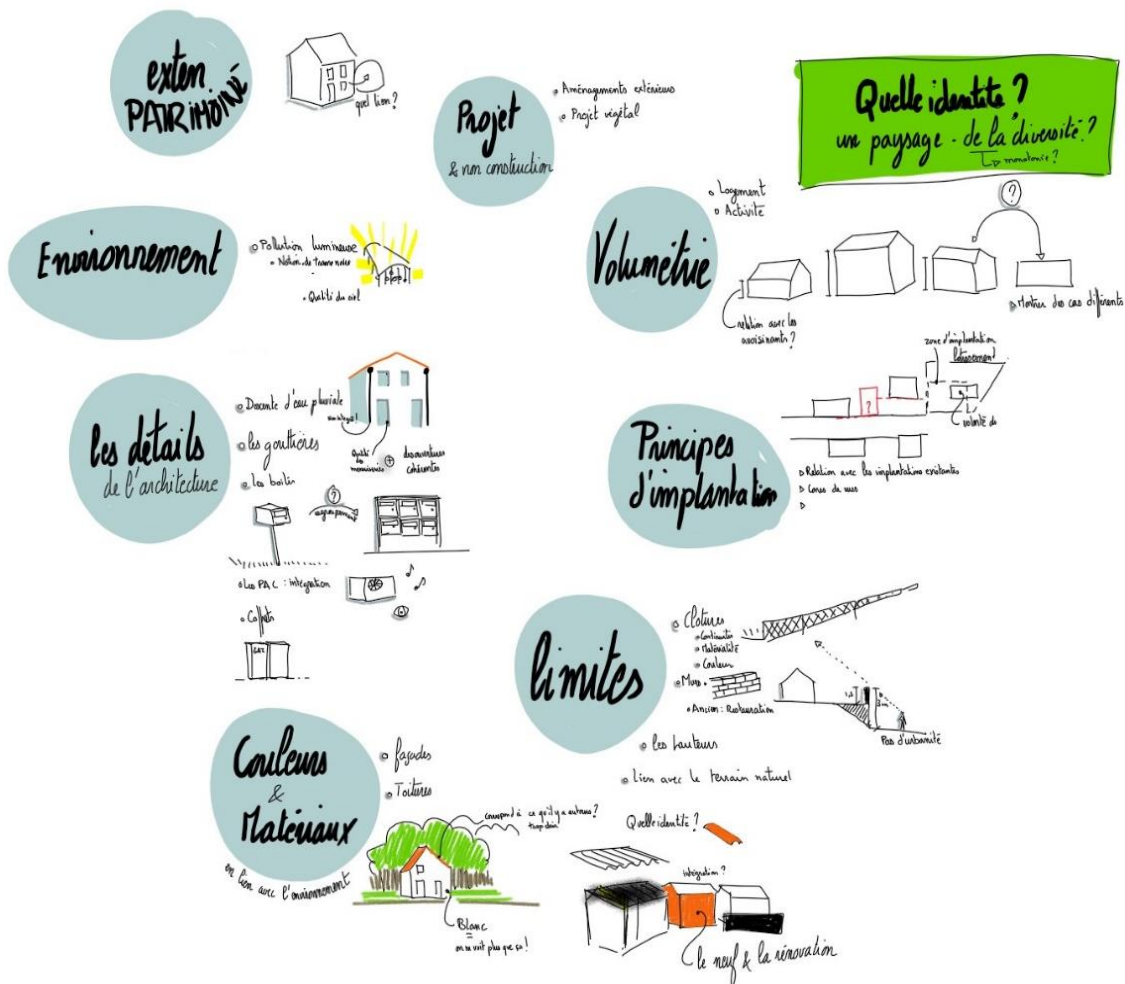 exten
PATRIMOINE
quel lien ?
Projet
& non construction
Aménagements extérieurs
Projet végétal
Quelle identité ?
un paysage - de la diversité ?
monotonie ?
Environnement
Pollution lumineuse
Notion de trame noire
Qualité du ciel
Volumétrie
Logement
Activité
?
relation avec les
avoisinants ?
Montrer des cas différents
les détails
de l'architecture
Descente d'eau pluviale
les gouttières
les boites
Qualité
des menuiseries
des ouvertures
cohérentes
?
regroupement
Les PAC : intégration
Coffrets
GAZ
Principes
d'implantation
zone d'implantation
lotissement
?
volonté de
Relation avec les implantations existantes
Cones de vues
limites
Clotures
Continuités
Matérialité
Couleur
Murs
Ancien : Restauration
Pas d'urbanité
les hauteurs
Lien avec le terrain naturel
Couleurs
&
Matériaux
en lien avec l'environnement
façades
Toitures
correspond à ce qu'il y a autour ?
Blanc
on ne voit plus que ça !
Quelle identité ?
intégration ?
le neuf & la rénovation